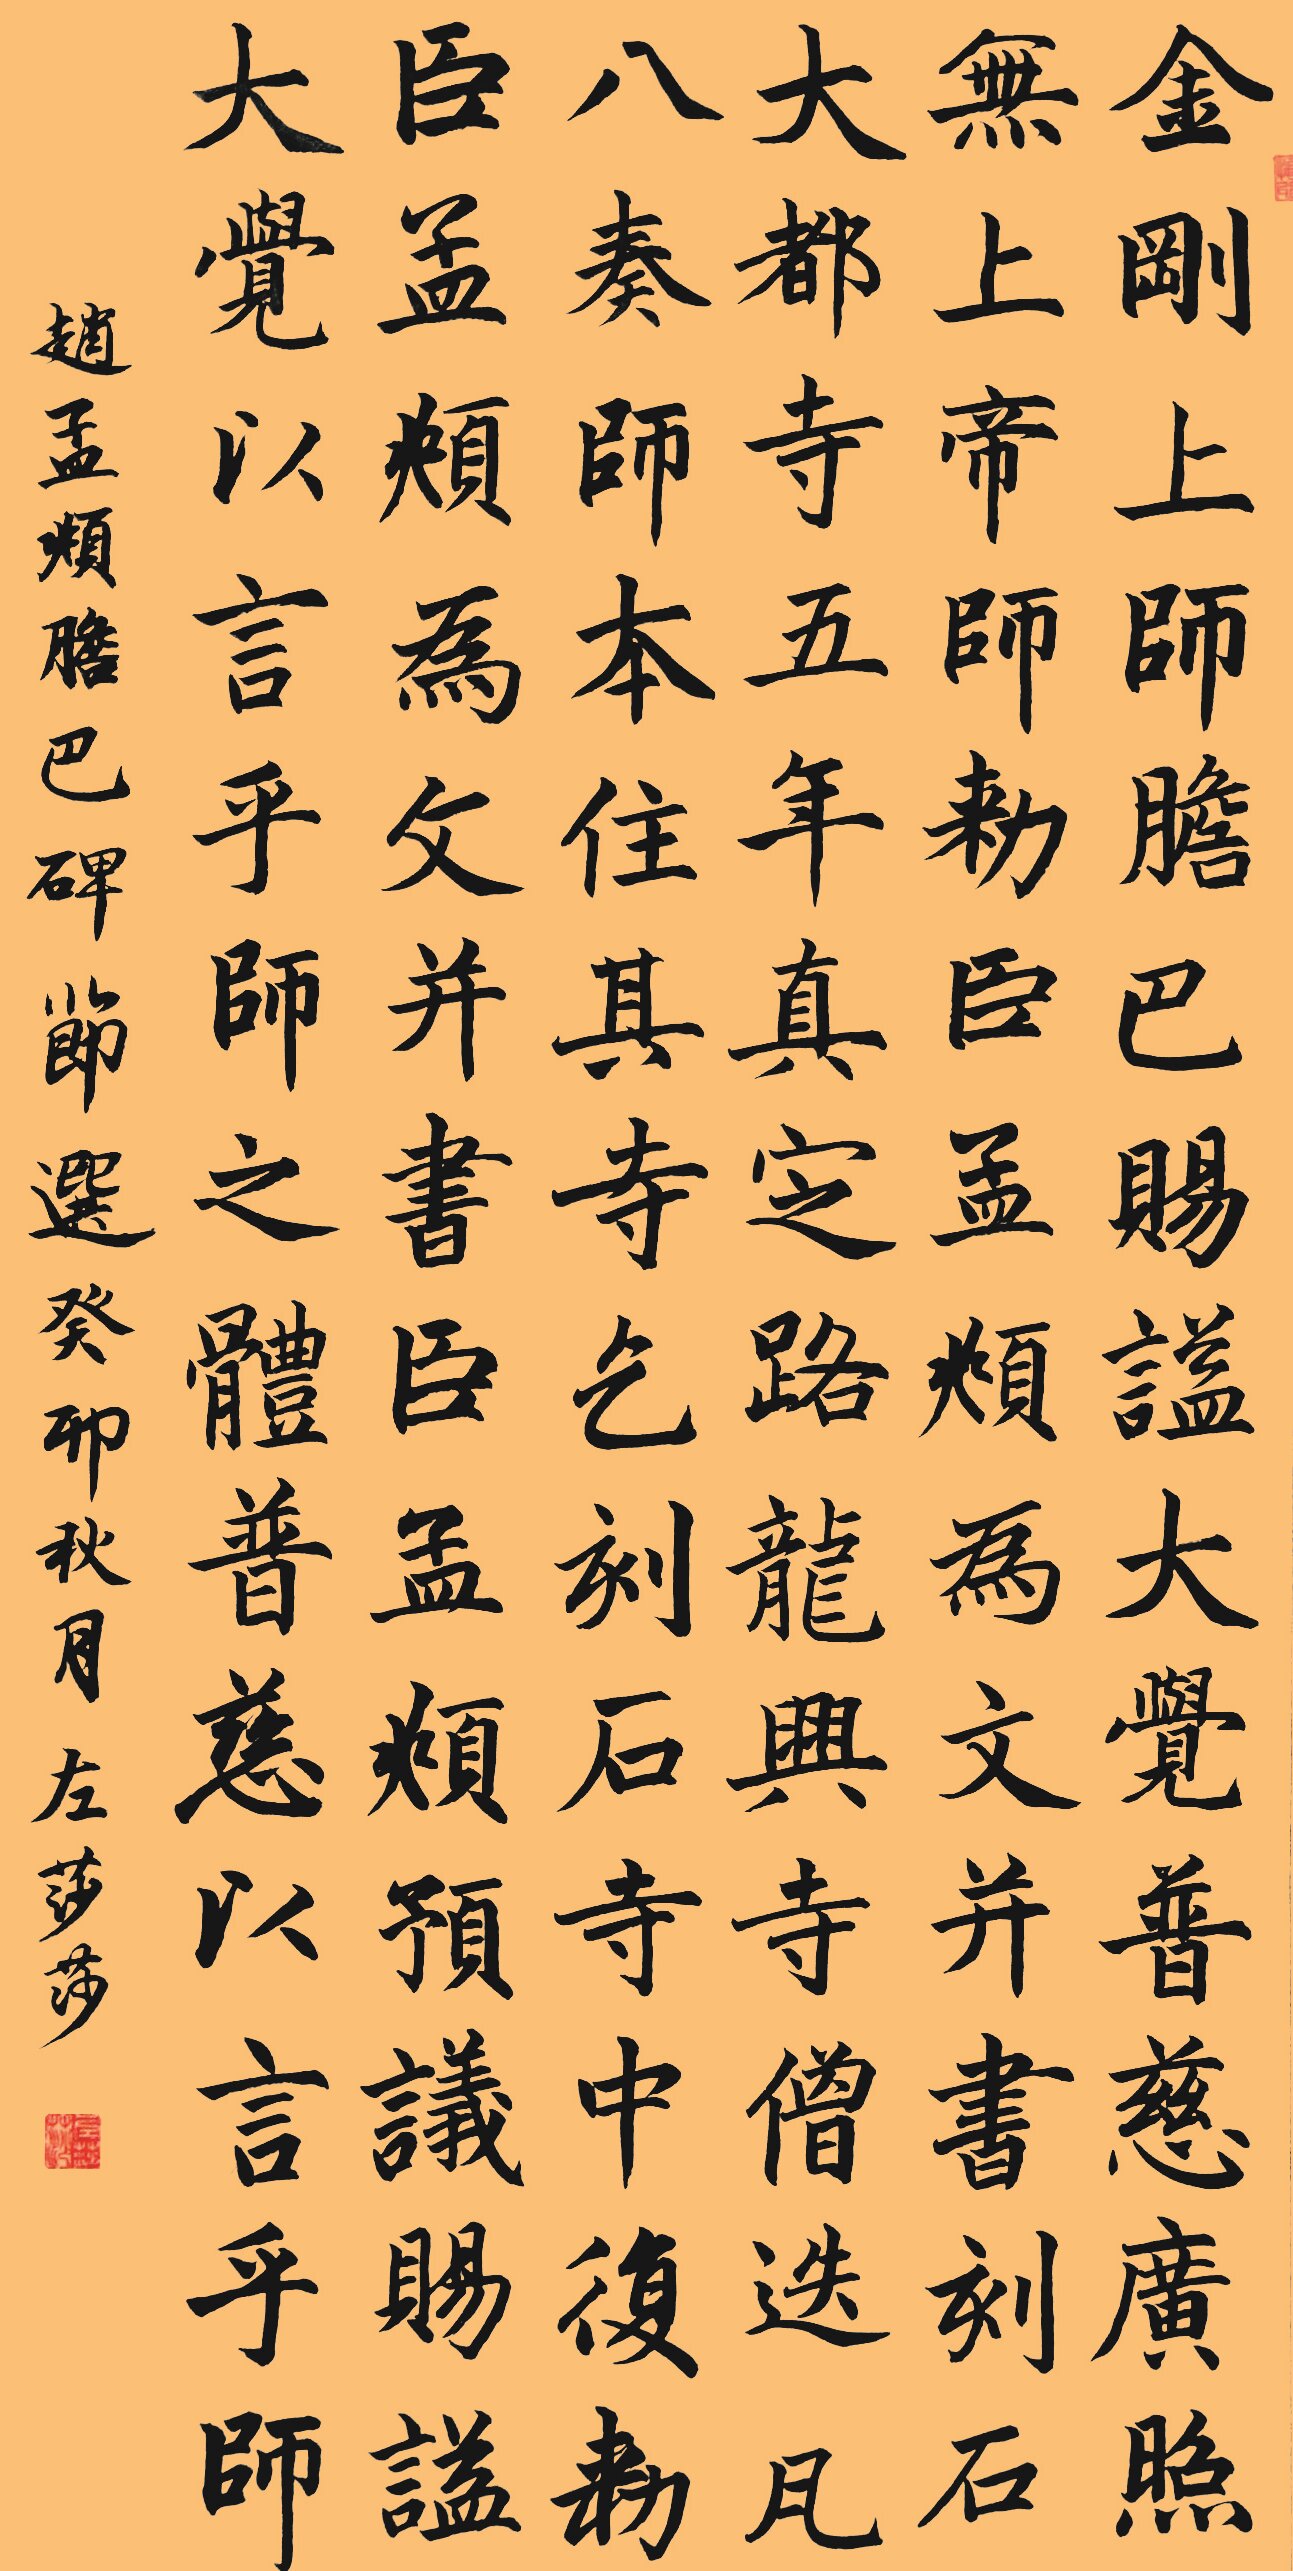 金剛上師膽巴賜謚大覺普慈廣照
無上帝師勅臣孟頫為文并書刻石
大都寺五年真定路龍興寺僧迭凡
八奏師本住其寺乞刻石寺中復勅
臣孟頫為文并書臣孟頫預議賜謚
大覺以言乎師之體普慈以言乎師
趙孟頫膽巴碑節選癸卯秋月左莎莎